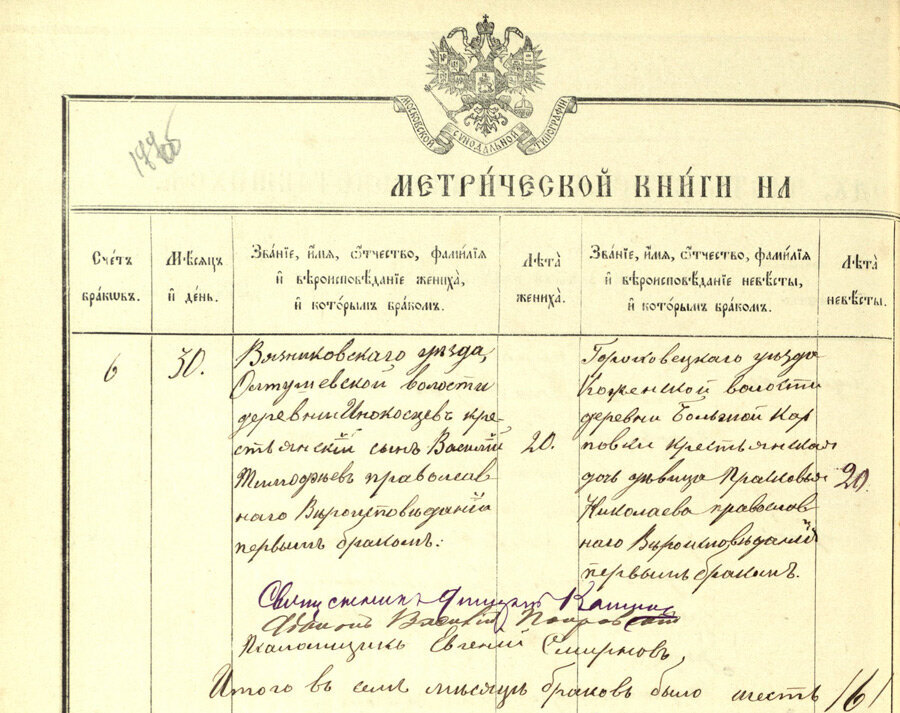 МОСКОВСКОЙ СѴНОДАЛЬНОЙ ТИПОГРАФІИ
МЕТРИ́ЧЕСКОЙ КНИ́ГИ НА
Сче́тъ бра́кѡвъ.
Мѣ́сѧцъ и҆ де́нь.
Зва́нїе, и҆́мѧ, ѻ҆́тчество, фами́лїѧ и҆ вѣроисповѣ́данїе жениха̀, и҆ кото́рымъ бра́комъ.
Лѣ́та жениха̀.
Зва́нїе, и҆́мѧ, ѻ҆́тчество, фами́лїѧ и҆ вѣроисповѣ́данїе невѣ́сты, и҆ кото́рымъ бра́комъ.
Лѣ́та невѣ́сты.
6
30.
Вязниковскаго уѣзда,
Олтушевской волости
деревни Инокосцевъ кре-
стьянскій сынъ Василій
Тимофѣевъ православ
наго Вѣроисповѣданія
первымъ бракомъ:
20.
Гороховецкаго уѣзда
Коженской волости
деревни Большой Кар
повки крестьянская
дочь дѣвица Прасковья
Николаева православ
наго Вѣроисповѣданія
первымъ бракомъ.
20.
Священникъ
Діаконъ Василій Покровскій
Псаломщикъ Евгеній Смирновъ,
Итого въ семъ мѣсяцѣ браковъ было шесть /6/